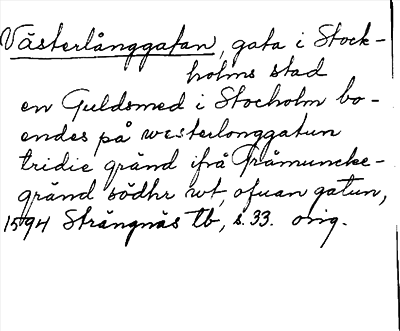 Västerlånggatan, gata i Stock-
holms stad
en Guldsmed i Stocholm bo-
endes på westerlonggatun
tridie gränd ifrå Gråmuncke-
gränd södhr wt, ofuan gatun,
1594 Strängnäs tb, s. 33. orig.